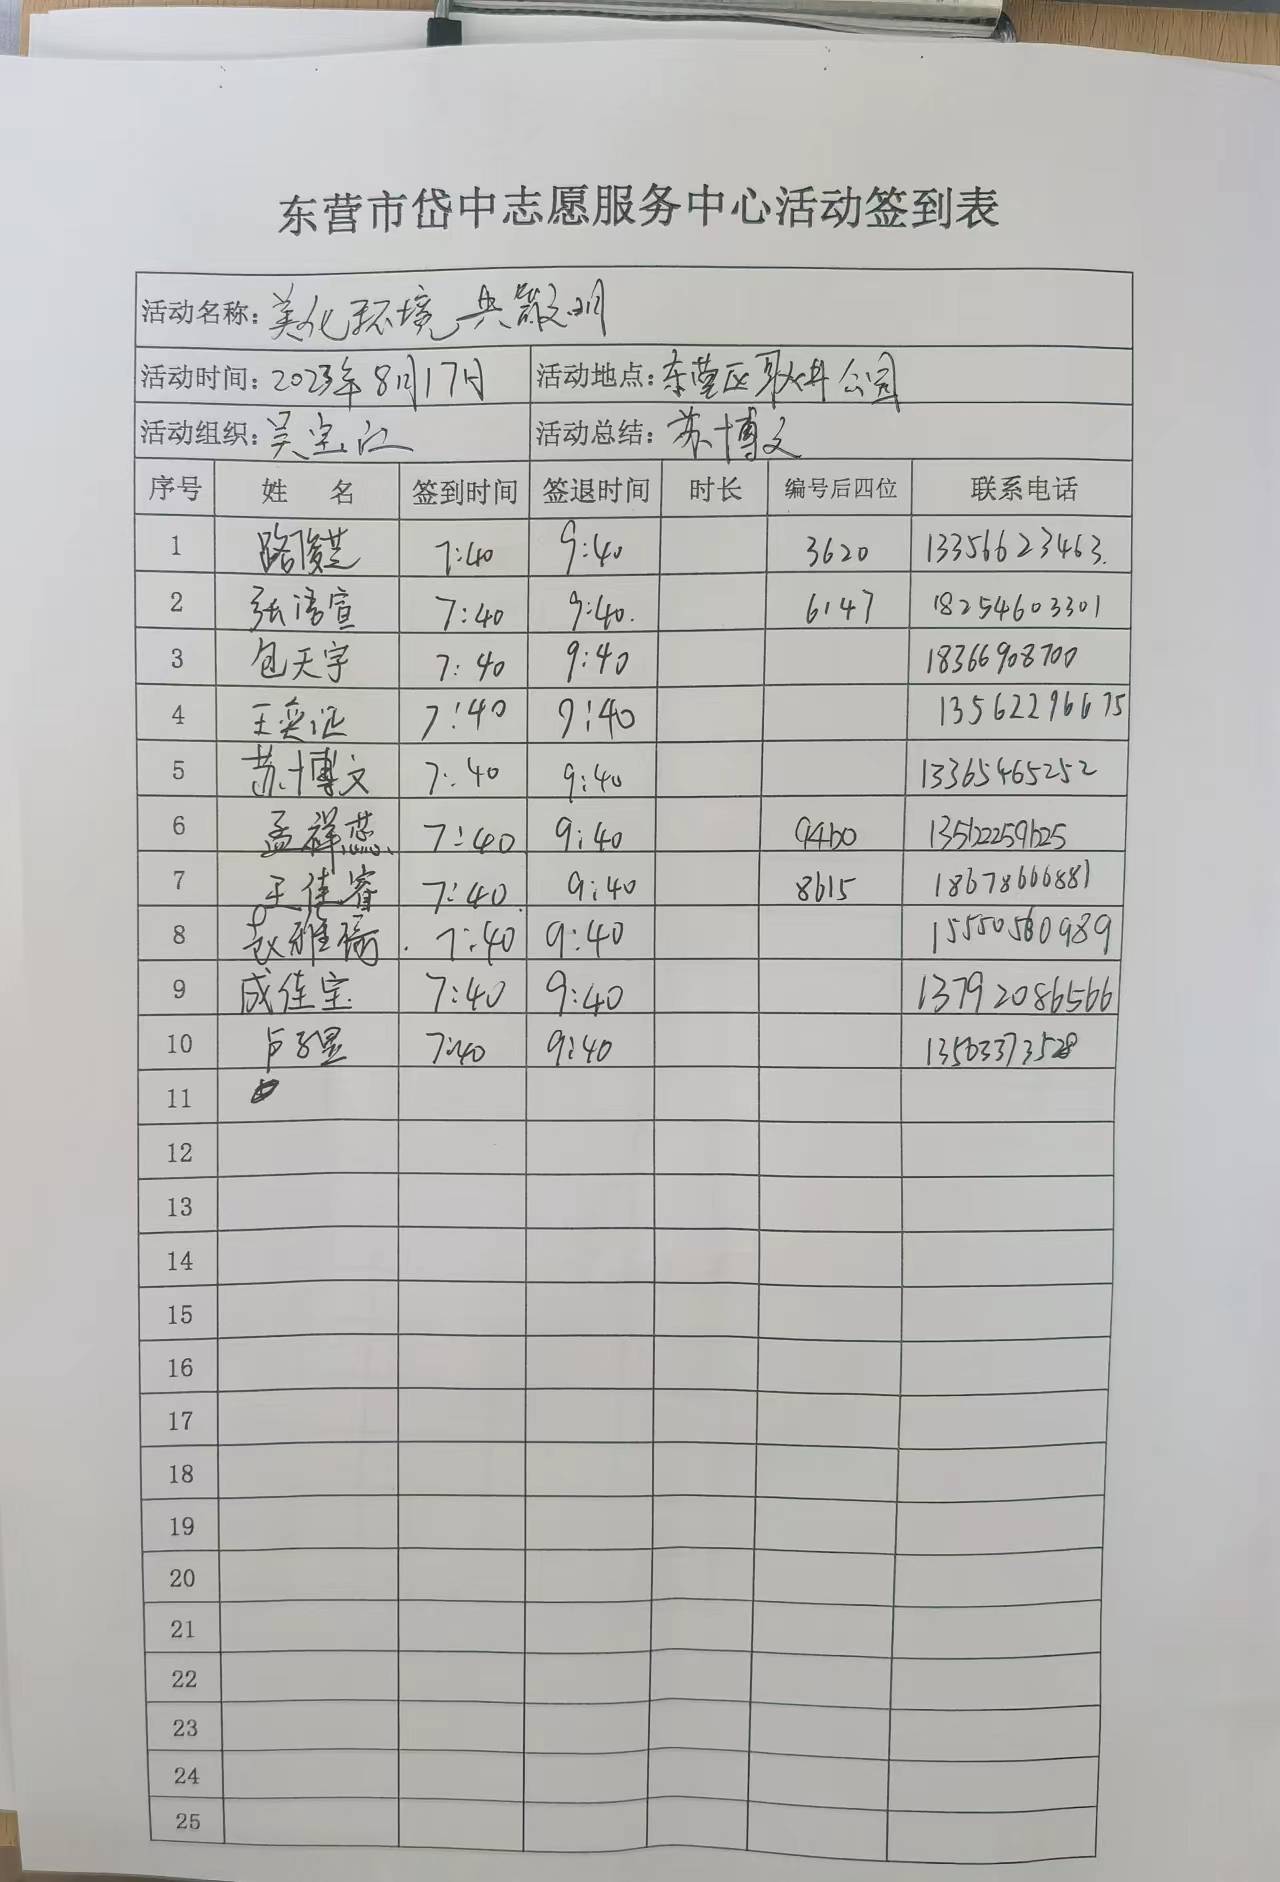 东营市岱中志愿服务中心活动签到表
活动名称：美化环境 共
活动时间：2023年8月17日 活动地点：东营区耿井公园
活动组织：吴宝江 活动总结：苏博文
序号 姓 名 签到时间 签退时间 时长 编号后四位 联系电话
1 7:40 9:40 3620 13356623463.
2 张洧宣 7:40 9:40. 6147 18254603301
3 包天宇 7:40 9:40 18366908700
4 王奕 7:40 9:40 13562296675
5 苏博文 7:40 9:40 13365465252
6 孟祥蕊 7:40 9:40 9460 13562259625
7 王佳睿 7:40 9:40 8615 18678666881
8 赵雅 7:40 9:40 15550560989
9 成佳宝 7:40 9:40 13792086566
10 卢子墨 7:40 9:40 13563373528
11
12
13
14
15
16
17
18
19
20
21
22
23
24
25